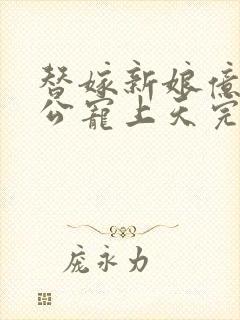 替嫁新娘億
公寵上天完
庞永力